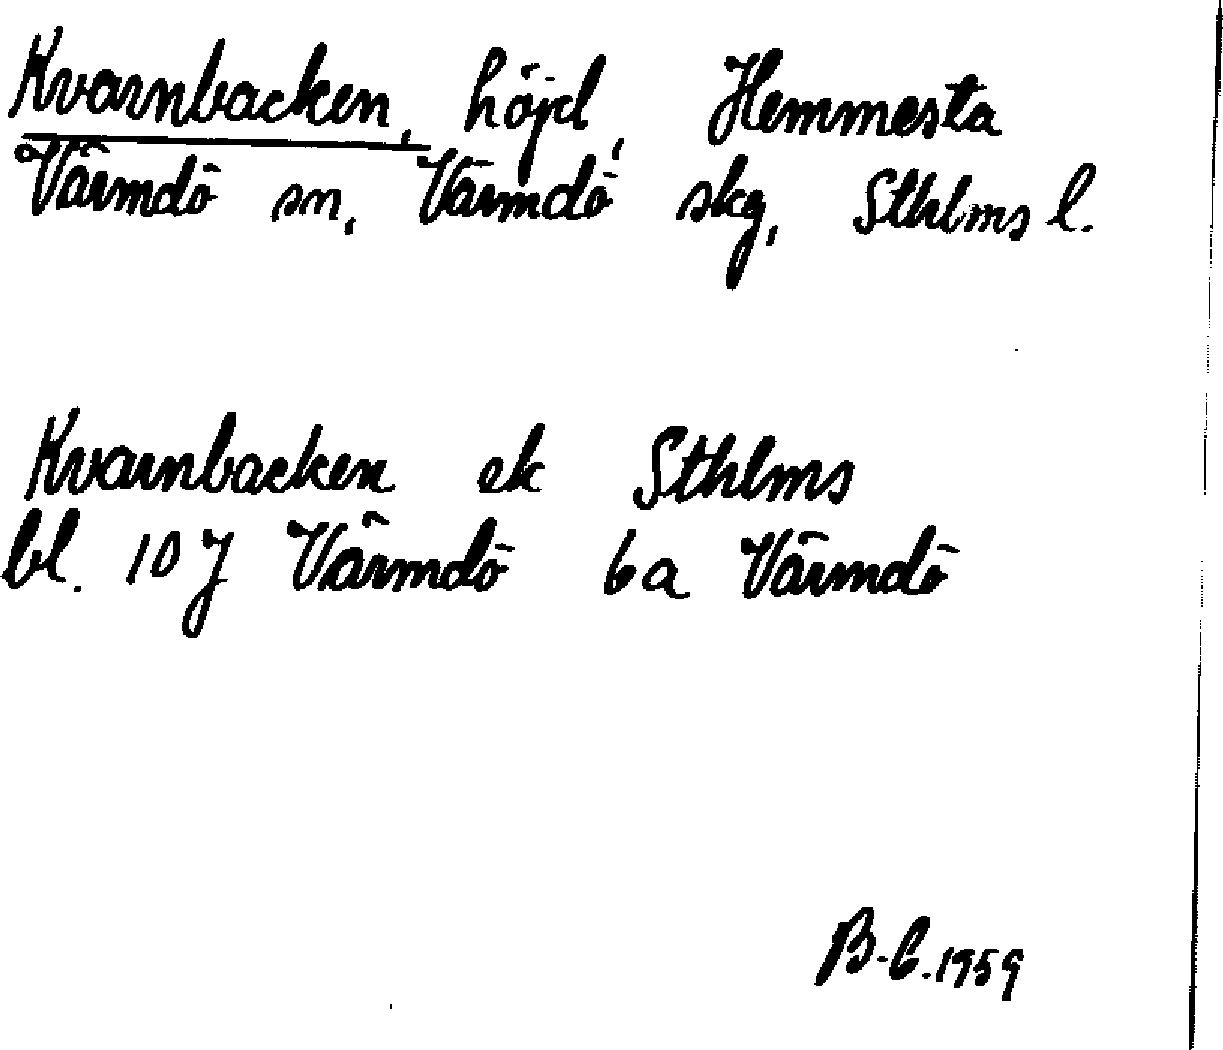 Kvarnbacken, höjd, Hemmesta
Värmdö sn, Värmdö skg, Sthlms l.
Kvarnbacken ek Sthlms
bl. 10 J Värmdö 6a Värmdö
B-C. 1959